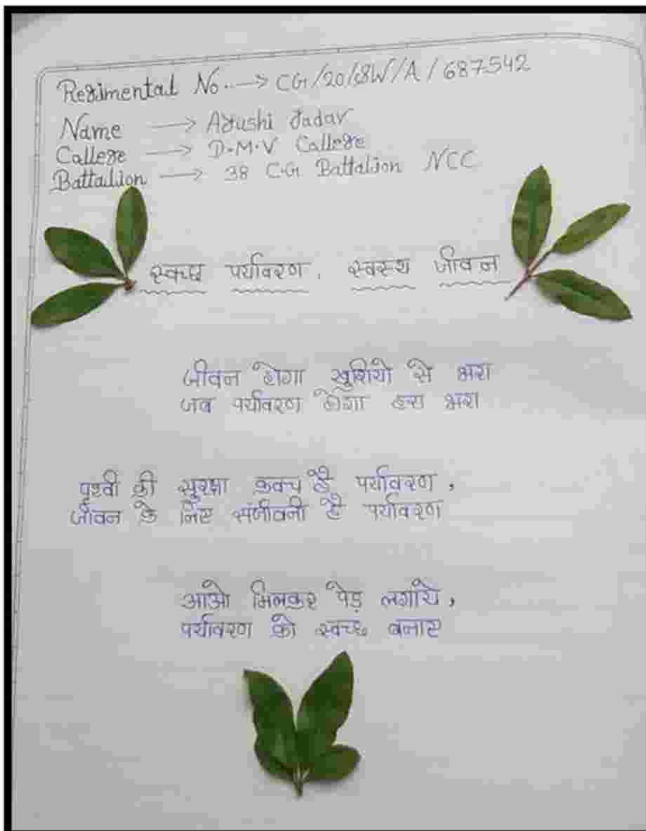 Regimental No. → CG/20/SW/A/687542
Name → Ayushi Jadav
Callege → D.M.V Callege
Battalion → 38 C.G Battalion NCC
स्वच्छ पर्यावरण, स्वस्थ जीवन
जीवन होगा खुशियो से भरा
जब पर्यावरण होगा हरा भरा
पृथ्वी की सुरक्षा कवच है पर्यावरण,
जीवन के लिए संजीवनी है पर्यावरण
आओ मिलकर पेड़ लगाये,
पर्यावरण को स्वच्छ बनाए